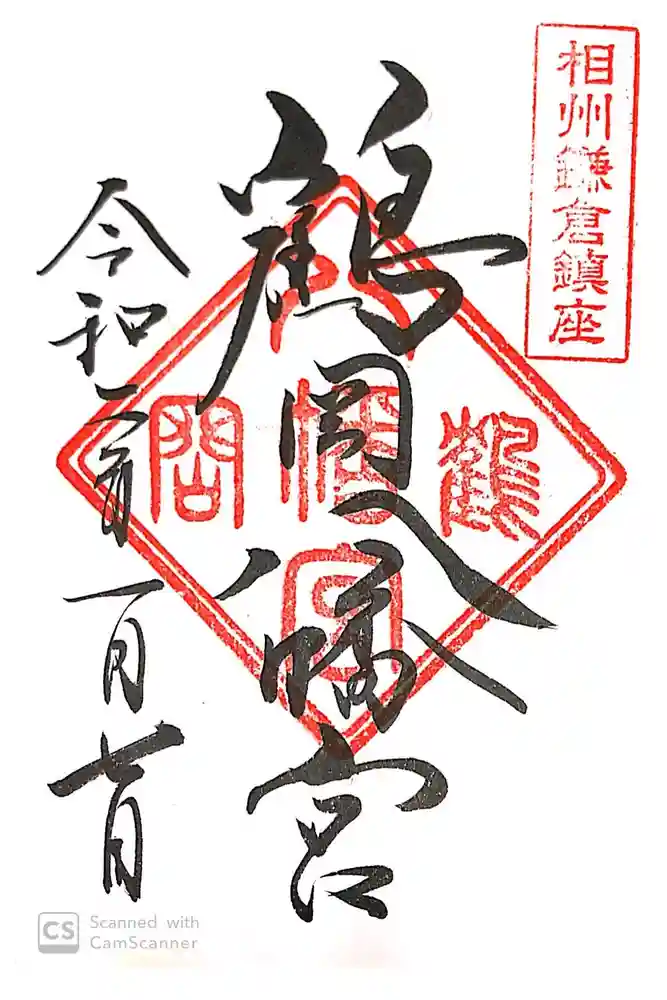 相州鎌倉鎮座
鶴岡八幡宮
鶴岡八幡宮
令和二年一月日
CS Scanned with
CamScanner